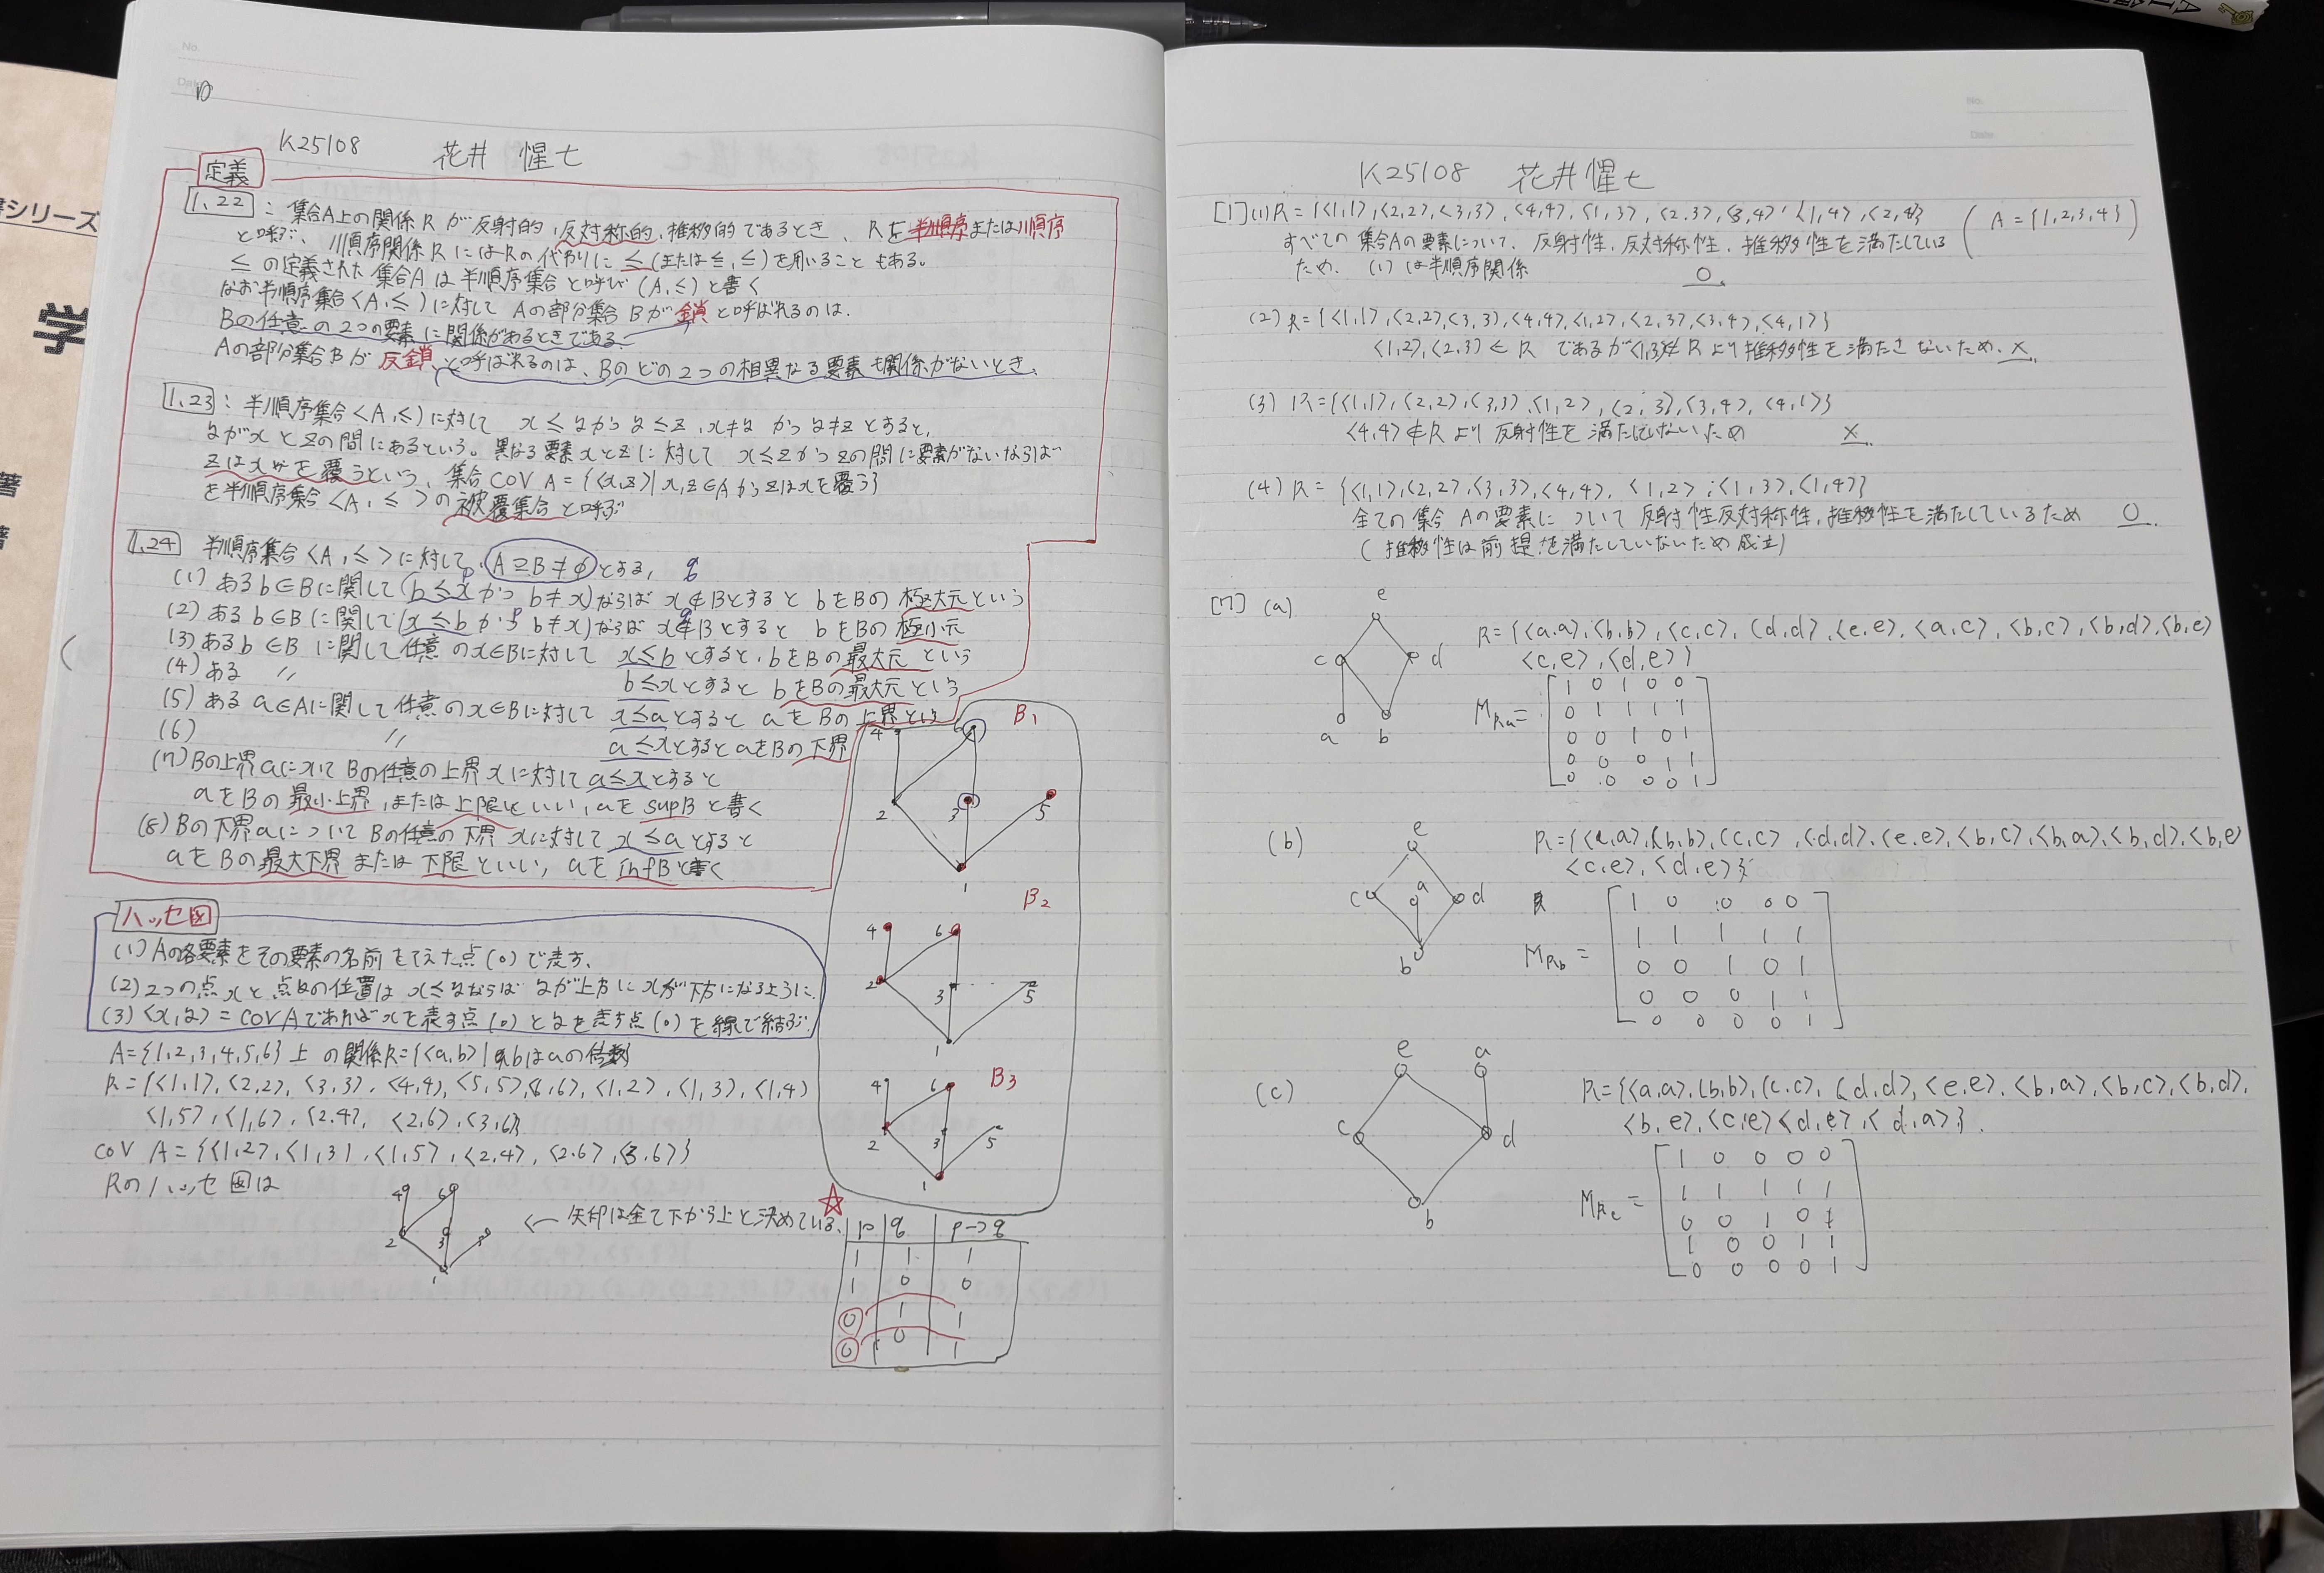 No.
Date
10
K25108 花井 惺七
定義
1.22 : 集合A上の関係Rが反射的,反対称的,推移的であるとき、Rを半順序または順序
と呼ぶ、順序関係RにはRの代わりに≤(または≦,≤)を用いることもある。
≤の定義された集合Aは半順序集合と呼び(A,≤)と書く
なお半順序集合<A,≤)に対してAの部分集合Bが鎖と呼ばれるのは.
Bの任意の2つの要素に関係があるときである.
Aの部分集合Bが反鎖と呼ばれるのは、Bのどの2つの相異なる要素も関係がないとき、
1.23 : 半順序集合<A,≤)に対して x≤yかつy≤z,x≠yかつy≠zとすると,
yがxとzの間にあるという。異なる要素xとzに対して x≤zかつzの間に要素がないならば
zはxを覆うという、集合COV A={<x,z>|x,z∈AかつzはXを覆う}
を半順序集合<A,≤>の被覆集合と呼ぶ
1.24 半順序集合<A,≤>に対して,A⊇B≠φとする,
(1)あるb∈Bに関して(b≤xかつb≠x)ならばx∉Bとするとbを Bの極大元という
(2)あるb∈Bに関して(x≤bかつb≠x)ならばx∉Bとするとbを Bの極小元
(3)あるb∈Bに関して任意のx∈Bに対してx≤bとすると,bをBの最大元という
(4)ある 〃 b≤xとするとbをBの最大元という
(5)あるa∈Aに関して任意のx∈Bに対してx≤aとするとaをBの上界という
(6) 〃 a≤xとするとaをBの下界
(7)Bの上界aについてBの任意の上界xに対してa≤xとすると
aをBの最小上界,または上限といい,aをsupBと書く
(8)Bの下界aについてBの任意の下界xに対してx≤aとすると
aをBの最大下界または下限といい,aをinfBと書く
B1
4
6
2
3
5
1
B2
4
6
2
3
5
1
B3
4
6
2
3
5
1
ハッセ図
(1)Aの各要素をその要素の名前をそえた点(o)で表す、
(2)2つの点xと点yの位置はx≤yならばyが上方にxが下方になるように.
(3)<x,y>=COV Aであればxを表す点(o)とyを表す点(o)を線で結ぶ.
A={1,2,3,4,5,6}上の関係R={<a,b>|bはaの倍数}
R={<1,1>,<2,2>,<3,3>,<4,4>,<5,5>,6,6>,<1,2>,<1,3>,<1,4>
<1,5>,<1,6>,<2.4>,<2,6>,<3,6>}
COV A={<1,2>,<1,3>,<1,5>,<2,4>,<2.6>,<3.6>}
Rのハッセ図は
4
6
2
3
5
1
← 矢印は全て下から上と決めている.
☆
p q p→q
1 1 1
1 0 0
0 1 1
0 0 1
No.
Date
K25108 花井惺七
[1](1)R={<1,1>,<2,2>,<3,3>,<4,4>,<1,3>,<2.3>,<3,4>,<1,4>,<2,4>} (A={1,2,3,4})
すべての集合Aの要素について、反射性,反対称性,推移性を満たしている
ため、(1)は半順序関係 ○
(2)R={<1,1>,<2,2>,<3,3>,<4,4>,<1,2>,<2,3>,<3,4>,<4,1>}
<1,2>,<2,3>∈Rであるが<1,3>∉Rより推移性を満たさないため、×
(3) R={<1,1>,<2,2>,<3,3>,<1,2>,<2,3>,<3,4>,<4,1>}
<4,4>∉Rより反射性を満たしていないため ×
(4)R={<1,1>,<2,2>,<3,3>,<4,4>,<1,2>,<1,3>,<1,4>}
全ての集合Aの要素について反射性反対称性,推移性を満たしているため ○
(推移性は前提を満たしていないため成立)
[7] (a)
e
c
d
a
b
R={<a.a>,<b,b>,<c,c>,<d,d>,<e,e>,<a,c>,<b,c>,<b,d>,<b,e>
<c,e>,<d,e>}
MRa=
1 0 1 0 0
0 1 1 1 1
0 0 1 0 1
0 0 0 1 1
0 0 0 0 1
(b)
e
c
a
d
b
R={<a,a>,<b,b>,<c,c>,<d,d>,<e,e>,<b,c>,<b,a>,<b,d>,<b,e>
<c,e>,<d,e>}
MRb=
1 0 0 0 0
1 1 1 1 1
0 0 1 0 1
0 0 0 1 1
0 0 0 0 1
(c)
e
a
c
d
b
R={<a,a>,<b,b>,<c,c>,<d,d>,<e,e>,<b,a>,<b,c>,<b,d>,
<b,e>,<c,e><d,e>,<d,a>}.
MRc=
1 0 0 0 0
1 1 1 1 1
0 0 1 0 1
1 0 0 1 1
0 0 0 0 1
シリーズ
学
著